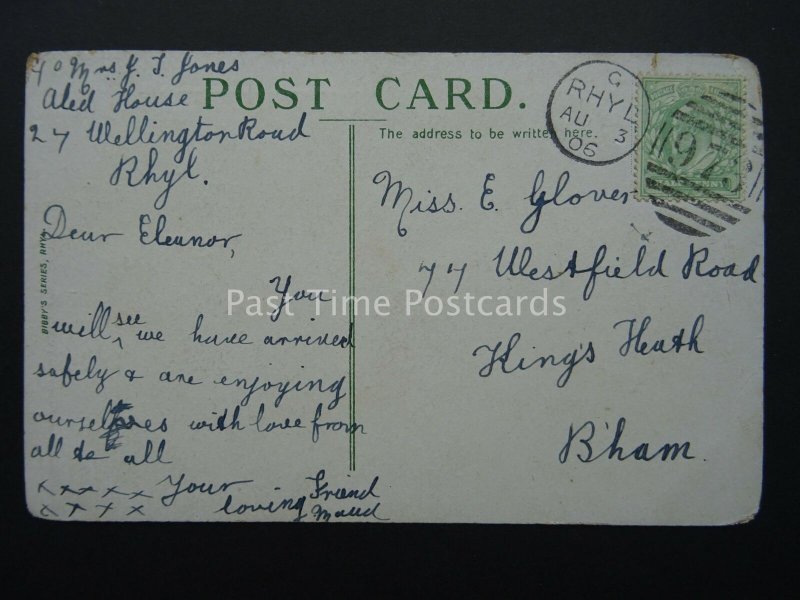 c/o Mrs J. T. Jones
Aled House
27 Wellington Road
Rhyl.
POST CARD.
The address to be written here.
G
RHYL
AU 3
06
Dear Eleanor,
You
will see we have arrived
safely & are enjoying
ourselves with love from
all to all
x x x x x Your
x x x x loving Friend
Maud
BIBBY'S SERIES, RHYL
Miss. E. Glover
77 Westfield Road
King's Heath
B'ham.
Past Time Postcards